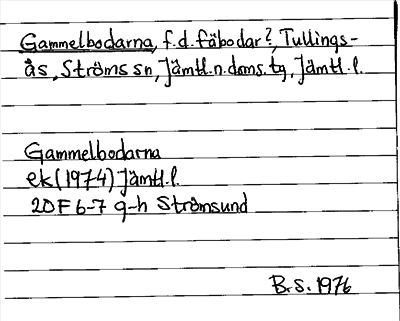 Gammelbodarna, f.d. fäbodar?, Tullings-
ås, Ströms sn, Jämtl.n.doms.tg, Jämtl.l.
Gammelbodarna
ek (1974) Jämtl.l.
20F 6-7 g-h Strömsund
B.S. 1976